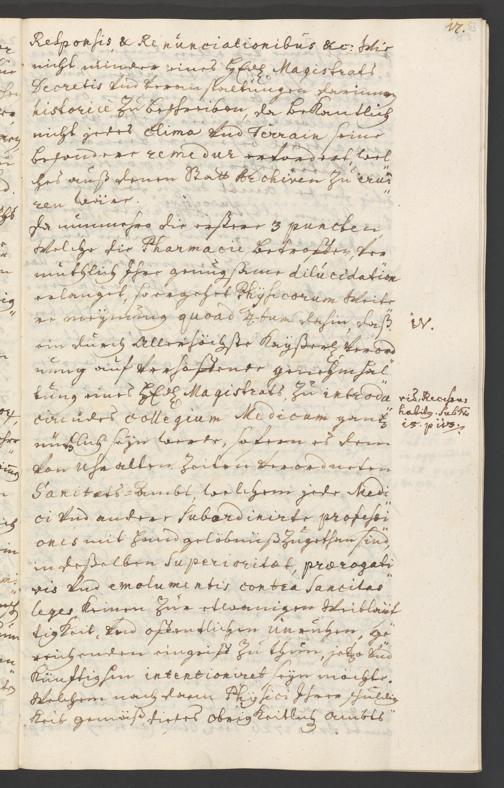 17.
Responsis, & Renunciationibus &c: Wie
nicht minder eines Magistrats
Decretis und Veranstaltungen darinnen
historice zu beschreiben, da bekantlich
nicht jedes Clima und Terrain seine
besondere remedur erfordert, wel
ches auß denen Statt Archiven zu erui
ren wäre.
Da nunmehro die erstere 3 puncten
welche die Pharmacie betreffen, ver
muthlich Ihre genugsame dilucidation
erlanget, so ergehet Physicorum weite
re meynung quoad 4tum dahin, daß
ein durch Allerhöchste Kayserl. Verord
nung auf verhoffende genehmhal
tung eines Magistrats zu introdu
cirendes Collegium Medicum gantz
nützlich seyn werde, sofern es dem
von uhralten Zeiten verordneten
Sanitäts-Ambt, welchem jede Medi
ci und andere Subordinirte professi
ones mit Handgelöbnuß zugethan sind
in deßelben Superiorität, prærogati
vis und emolumentis contra Sancitas
leges keinen zur etwanigen Weitläuf
tigkeit, und öffentlichen Unruhen, ge
reichenden eingriff zu thun, jetzo und
künfftighin intentioniret seyn möchte.
Welchem nach dann Physici Ihrer schuldig
keit gemäß dieses Obrigkeitlich Ambts
IV.
vid. Recens
habitz. sub No
13. p.